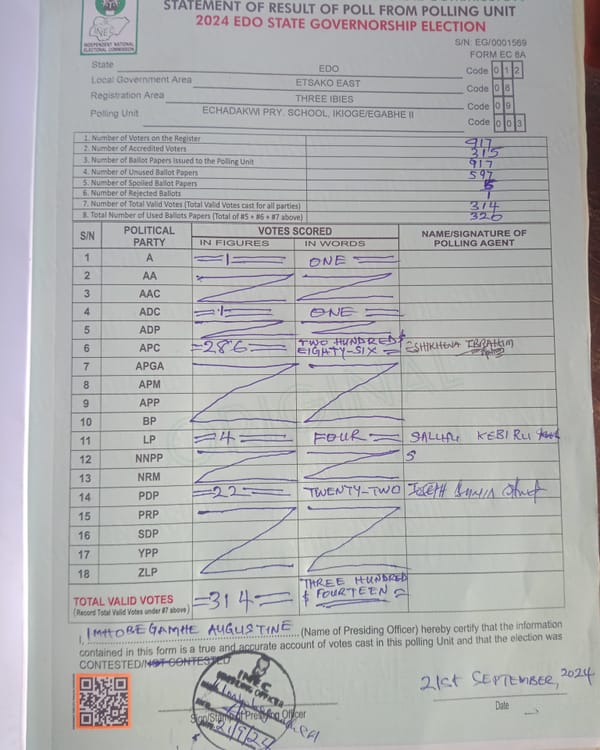 STATEMENT OF RESULT OF POLL FROM POLLING UNIT
2024 EDO STATE GOVERNORSHIP ELECTION
INEC
INDEPENDENT NATIONAL
ELECTORAL COMMISSION
S/N: EG/0001569
FORM EC 8A
State EDO Code 0 1 2
Local Government Area ETSAKO EAST Code 0 8
Registration Area THREE IBIES Code 0 9
Polling Unit ECHADAKWI PRY. SCHOOL, IKIOGE/EGABHE II Code 0 0 3
1. Number of Voters on the Register 917
2. Number of Accredited Voters 315
3. Number of Ballot Papers Issued to the Polling Unit 917
4. Number of Unused Ballot Papers 597
5. Number of Spoiled Ballot Papers
6. Number of Rejected Ballots 1
7. Number of Total Valid Votes (Total Valid Votes cast for all parties) 314
8. Total Number of Used Ballots Papers (Total of #5 + #6 + #7 above) 320
S/N POLITICAL PARTY VOTES SCORED NAME/SIGNATURE OF POLLING AGENT
IN FIGURES IN WORDS
1 A =1= ONE =
2 AA
3 AAC
4 ADC =1= ONE =
5 ADP
6 APC =286= TWO HUNDRED & EIGHTY-SIX = ESHIKHENA IBRAHIM
7 APGA
8 APM
9 APP
10 BP
11 LP =4= FOUR = SALLIHU KEBIRU
12 NNPP S
13 NRM
14 PDP =22= TWENTY-TWO JOSEPH
15 PRP
16 SDP
17 YPP
18 ZLP
TOTAL VALID VOTES =314= THREE HUNDRED & FOURTEEN =
(Record Total Valid Votes under #7 above)
I, IMHOBEGAMHE AUGUSTINE (Name of Presiding Officer) hereby certify that the information
contained in this form is a true and accurate account of votes cast in this polling Unit and that the election was
CONTESTED/NOT CONTESTED
INEC
PRESIDING OFFICER
21ST SEPTEMBER, 2024
Sign/Stamp of Presiding Officer
Date
21/9/24